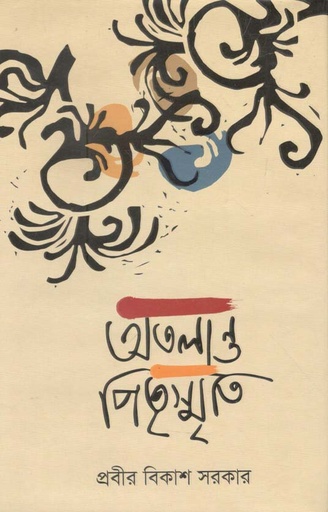 অতলান্ত
পিতৃস্মৃতি
প্রবীর বিকাশ সরকার